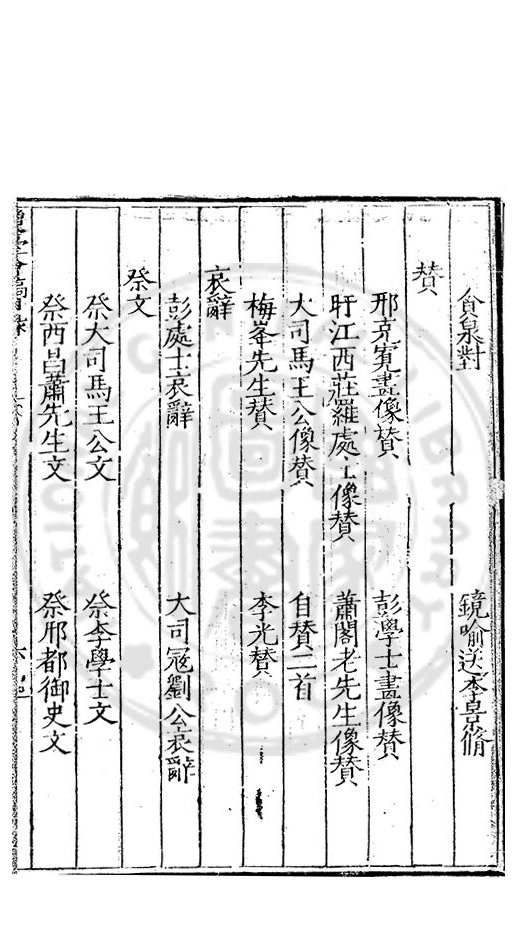 貪泉對 鏡喻送李景脩
贊
邢克寬畫像贊 彭學士畫像贊
盱江西莊羅處士像贊 蕭閣老先生像贊
大司馬王公像贊 自贊二首
梅峯先生贊 李光贊
哀辭
彭處士哀辭 大司冦劉公哀辭
祭文
祭大司馬王公文 祭李學士文
祭西昌蕭先生文 祭邢都御史文